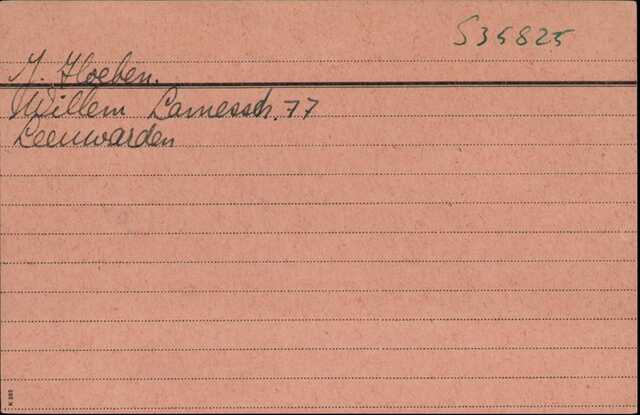 S35825
J. Hoeben.
Willem Lamessch. 77
Leeuwarden
K 283